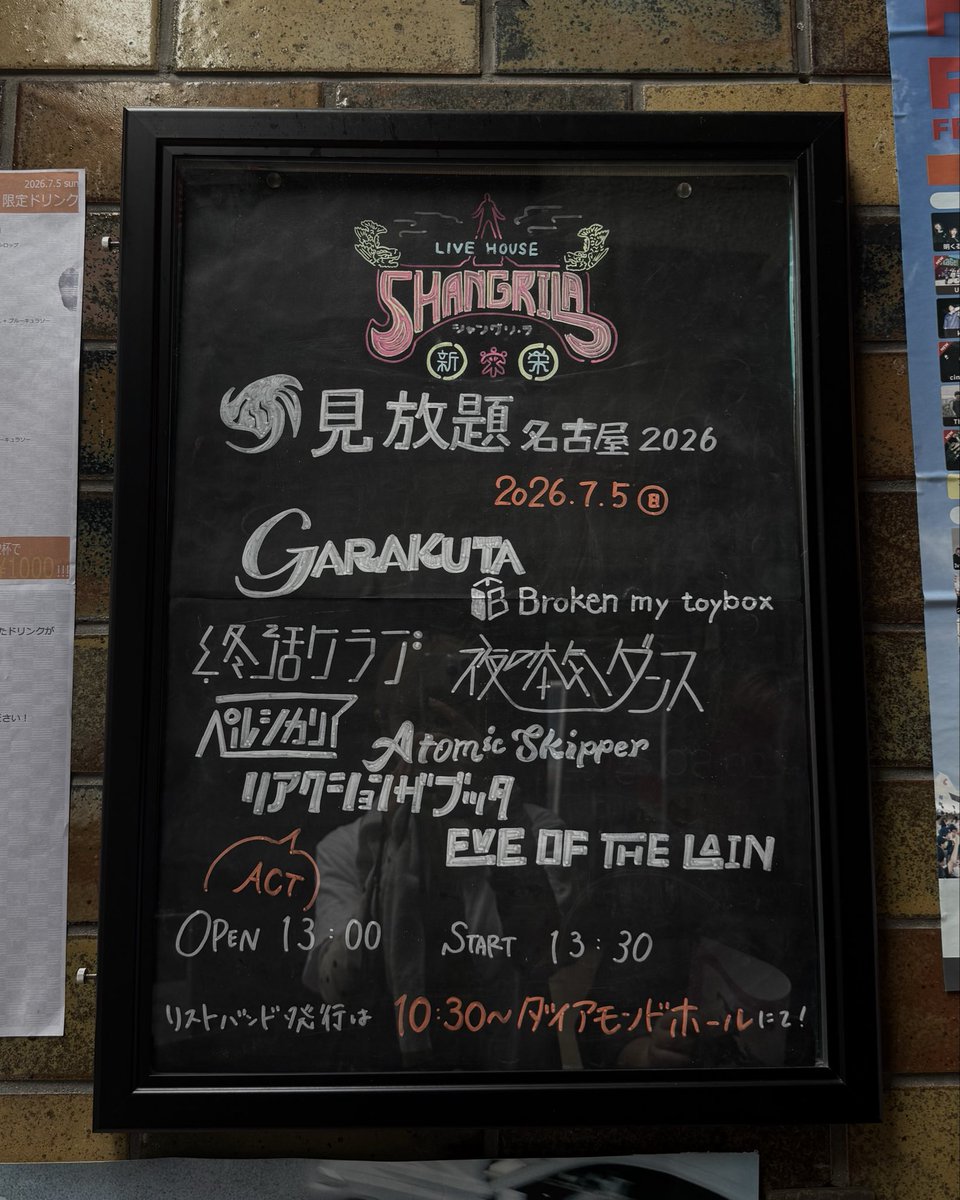 LIVE HOUSE
SHANGRILA
シャングリ・ラ
新 栄
見放題 名古屋 2026
2026.7.5 日
GARAKUTA
Broken my toybox
終活クラブ
夜の本気ダンス
ペルシカリア
Atomic Skipper
リアクション ザ ブッタ
EVE OF THE LAIN
ACT
OPEN 13:00 START 13:30
リストバンド発行は 10:30〜ダイアモンドホールにて!
2026.7.5 sun
限定ドリンク
ブルーキュラソー
¥1000!!!
たドリンクが
ださい!